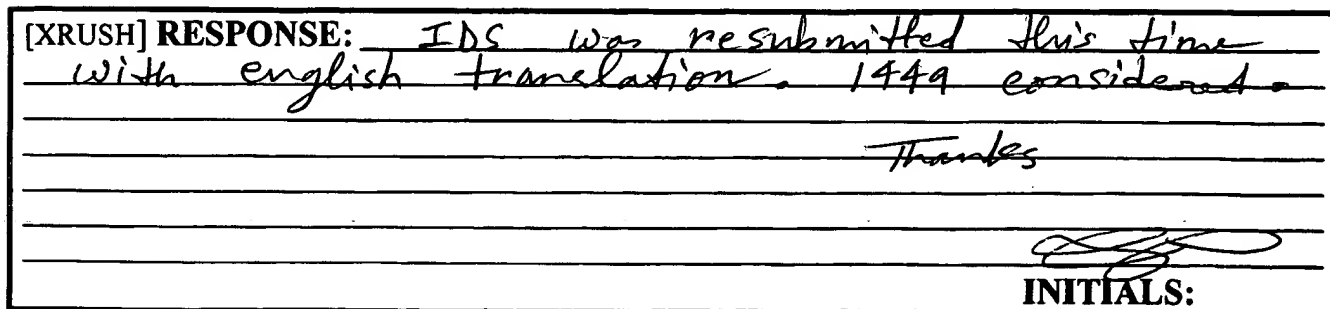 [XRUSH] RESPONSE: IDS was resubmitted this time
with english translation. 1449 considered.
Thanks
INITIALS: